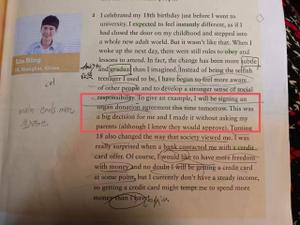 2 I celebrated my 18th birthday just before I went to
university. I expected to feel instantly different, as if I
had closed the door on my childhood and stepped into
a whole new adult world. But it wasn't like that. When I
woke up the next day, there were still rules to obey and
lessons to attend. In fact, the change has been more subtle
and gradual than I imagined. Instead of being the selfish
teenager I used to be, I have begun to feel more aware
of other people and to develop a stronger sense of social
responsibility. To give an example, I will be signing an
organ donation agreement this time tomorrow. This was
a big decision for me and I made it without asking my
parents (although I knew they would approve). Turning
18 also changed the way that society viewed me. I was
really surprised when a bank contacted me with a credit
card offer. Of course, I would like to have more freedom
with money and no doubt I will be getting a credit card
at some point, but I currently don't have a steady income,
so getting a credit card might tempt me to spend more
money than I have.
Lin Ning
18, Shanghai, China